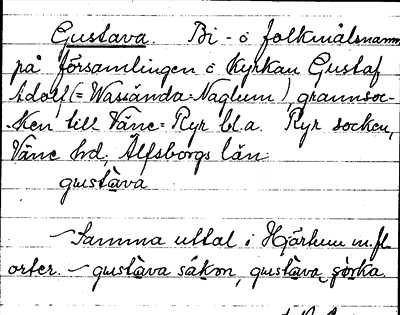 Gustava. Bi- o folkmålsnamn
på församlingen o kyrkan Gustaf
Adolf (= Wassända-Naglum), grannsoc-
ken till Väne-Ryr bl.a. Ryr socken,
Väne hd, Älfsborgs län.
gustàva
Samma uttal i Hjärtum m. fl.
orter. – gustàva såkɷn, gustàva